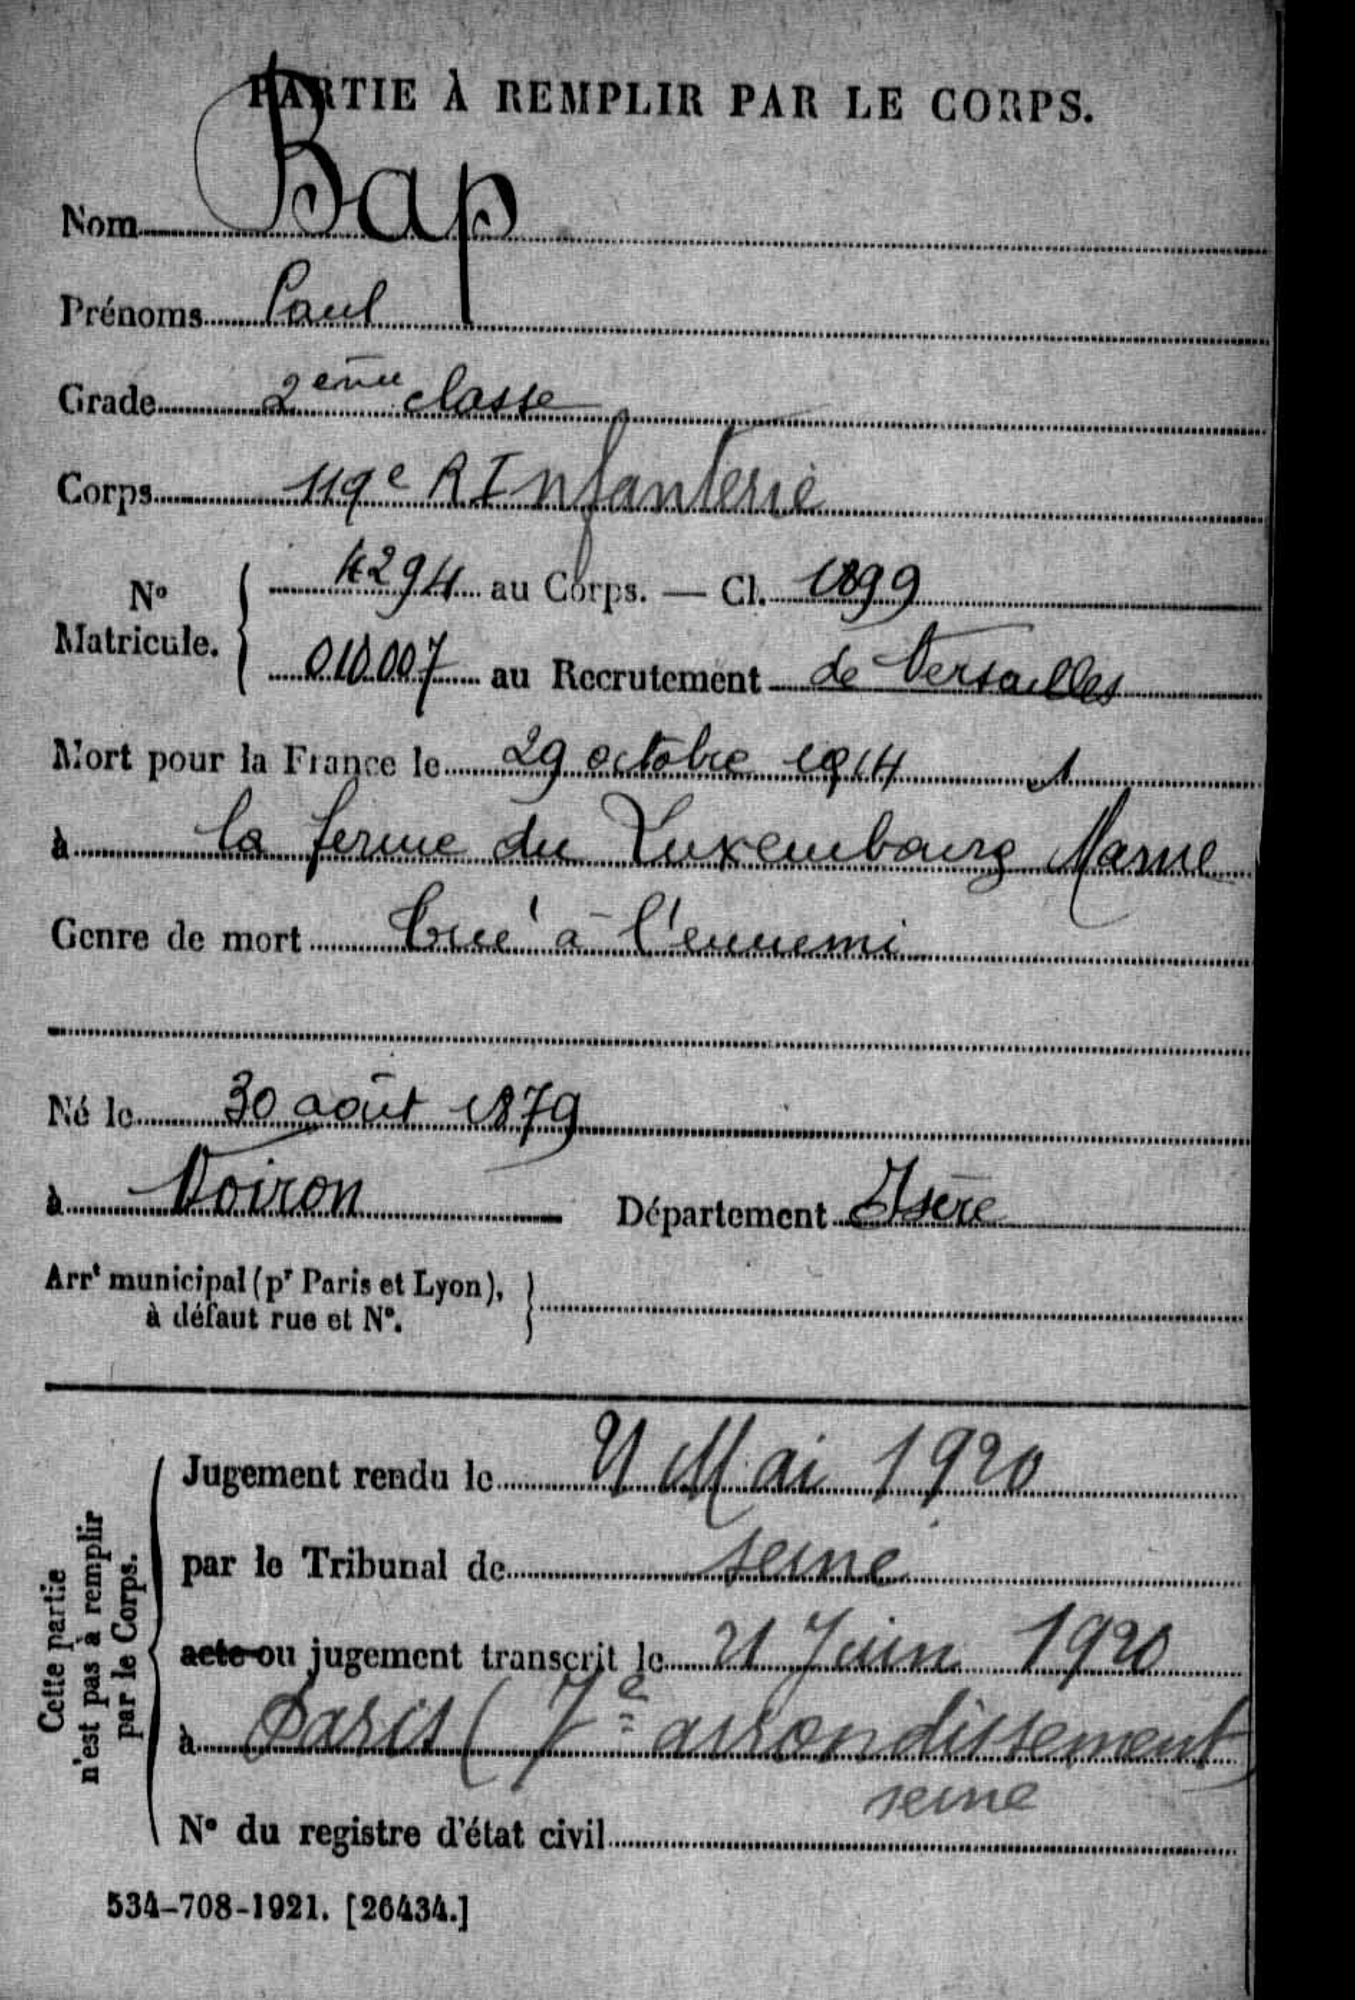 PARTIE À REMPLIR PAR LE CORPS.
Nom Bap
Prénoms Paul
Grade 2ème classe
Corps 119e R Infanterie
No Matricule. 4294 au Corps. — Cl. 1899
010007 au Recrutement de Versailles
Mort pour la France le 29 octobre 1914
à la ferme du Luxembourg Marne
Genre de mort tué à l'ennemi
Né le 30 août 1879
à Voiron Département Isère
Arrt municipal (pr Paris et Lyon),
à défaut rue et No.
Cette partie
n'est pas à remplir
par le Corps.
Jugement rendu le 21 Mai 1920
par le Tribunal de Seine
acte ou jugement transcrit le 21 Juin 1920
à Paris (7e arrondissement)
seine
No du registre d'état civil
534-708-1921. [26434.]